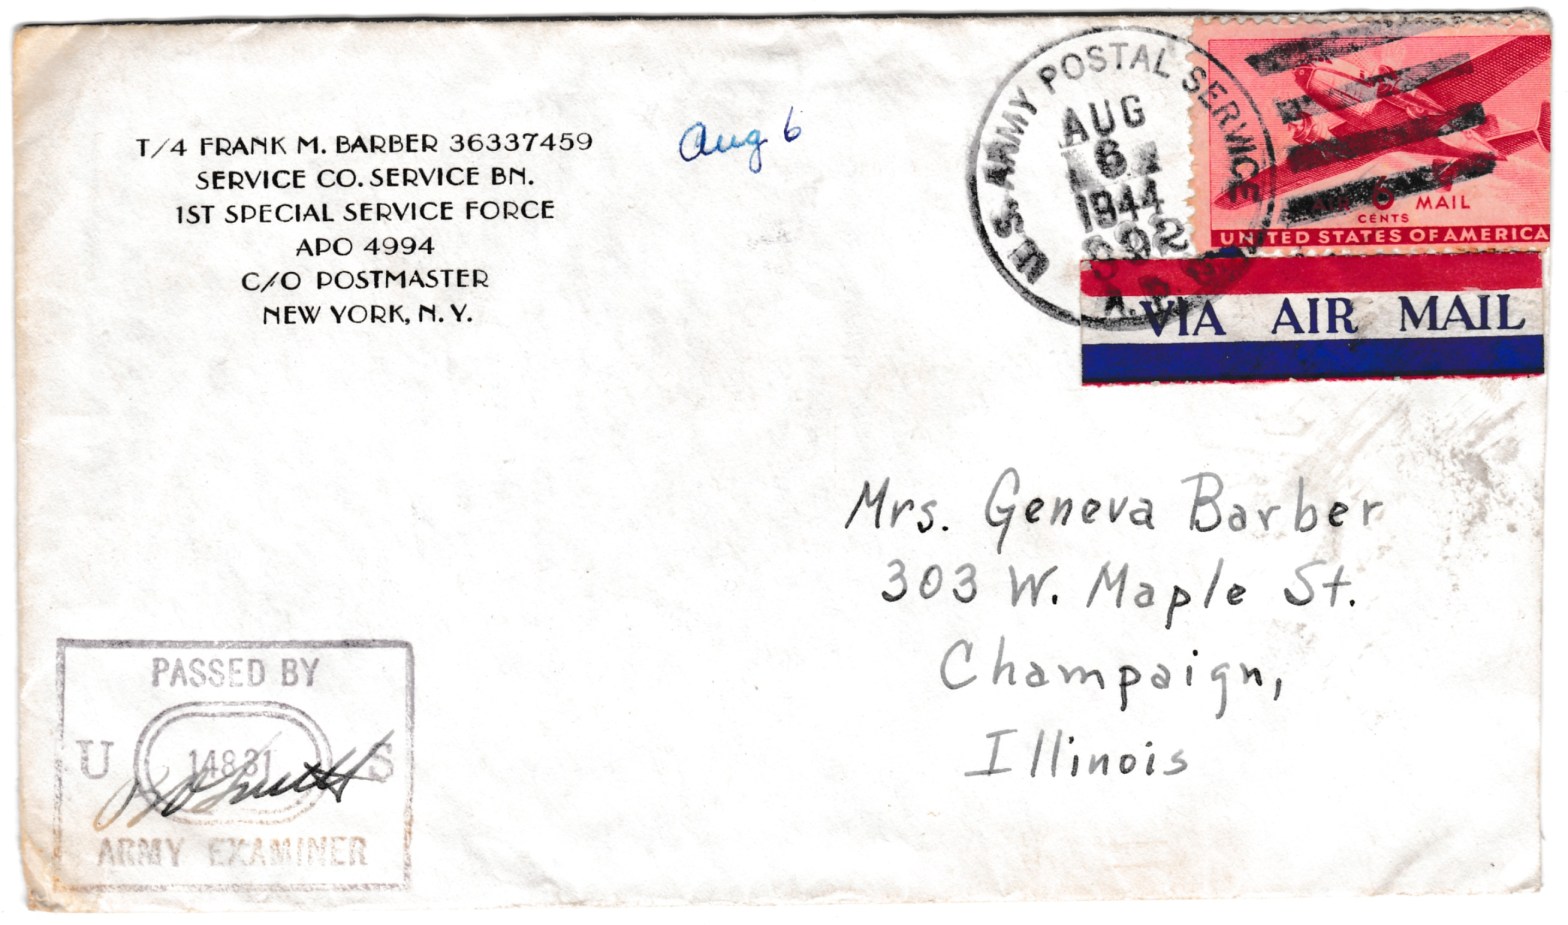 T/4 FRANK M. BARBER 36337459
SERVICE CO. SERVICE BN.
1ST SPECIAL SERVICE FORCE
APO 4994
C/O POSTMASTER
NEW YORK, N. Y.
Aug 6
U.S. ARMY POSTAL SERVICE
AUG
6
1944
A.P.O.
AIR 6 MAIL
CENTS
UNITED STATES OF AMERICA
VIA AIR MAIL
Mrs. Geneva Barber
303 W. Maple St.
Champaign,
Illinois
PASSED BY
U 14831 S
ARMY EXAMINER